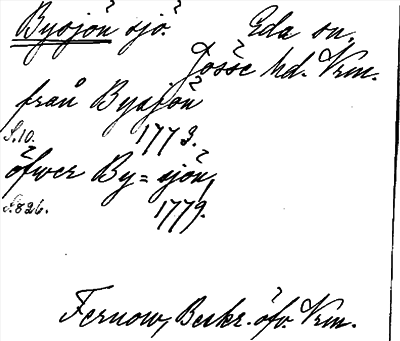 Bysjön sjö. Eda sn.
Jösse hd. Vrm.
från Bysjön
S.10. 1773.
öfwer By=sjön,
S.826. 1779.
Fernow, Beskr. öfv. Vrm.